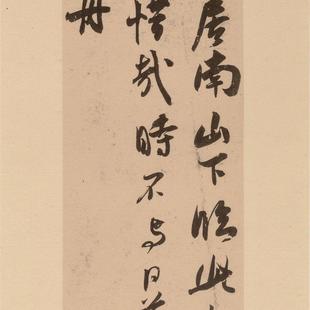 居南山下臨此
惜哉時不与日
丹